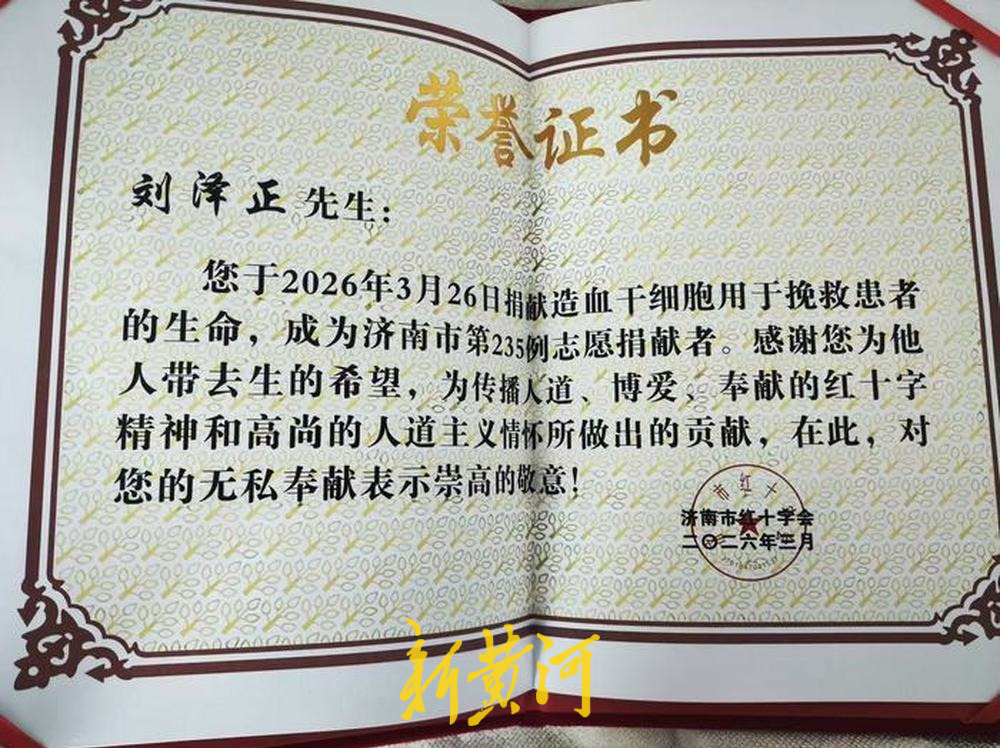 荣誉证书
刘泽正先生：
您于2026年3月26日捐献造血干细胞用于挽救患者
的生命，成为济南市第235例志愿捐献者。感谢您为他
人带去生的希望，为传播人道、博爱、奉献的红十字
精神和高尚的人道主义情怀所做出的贡献，在此，对
您的无私奉献表示崇高的敬意！
济南市红十字会
二〇二六年三月
新黄河